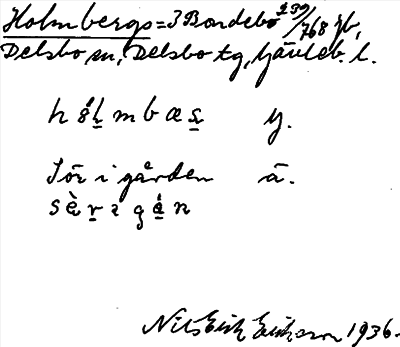 Holmbergs = 3 Bondebo 239/768 jb,
Delsbo sn, Delsbo tg, Gävleb. l.
h å l m b æ s y.
Sör i gården ä.
s è r i g å n
Nils Erik Eriksson 1936.